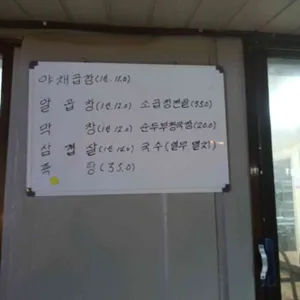 야채곱창(1인 11.0)
알 곱 창(1인 12.0) 소곱창전골(35.0)
막 창(1인 12.0) 순두부청국장(20.0)
삼 겹 살(1인 14.0) 국수(열무 멸치)
족 탕(35.0)